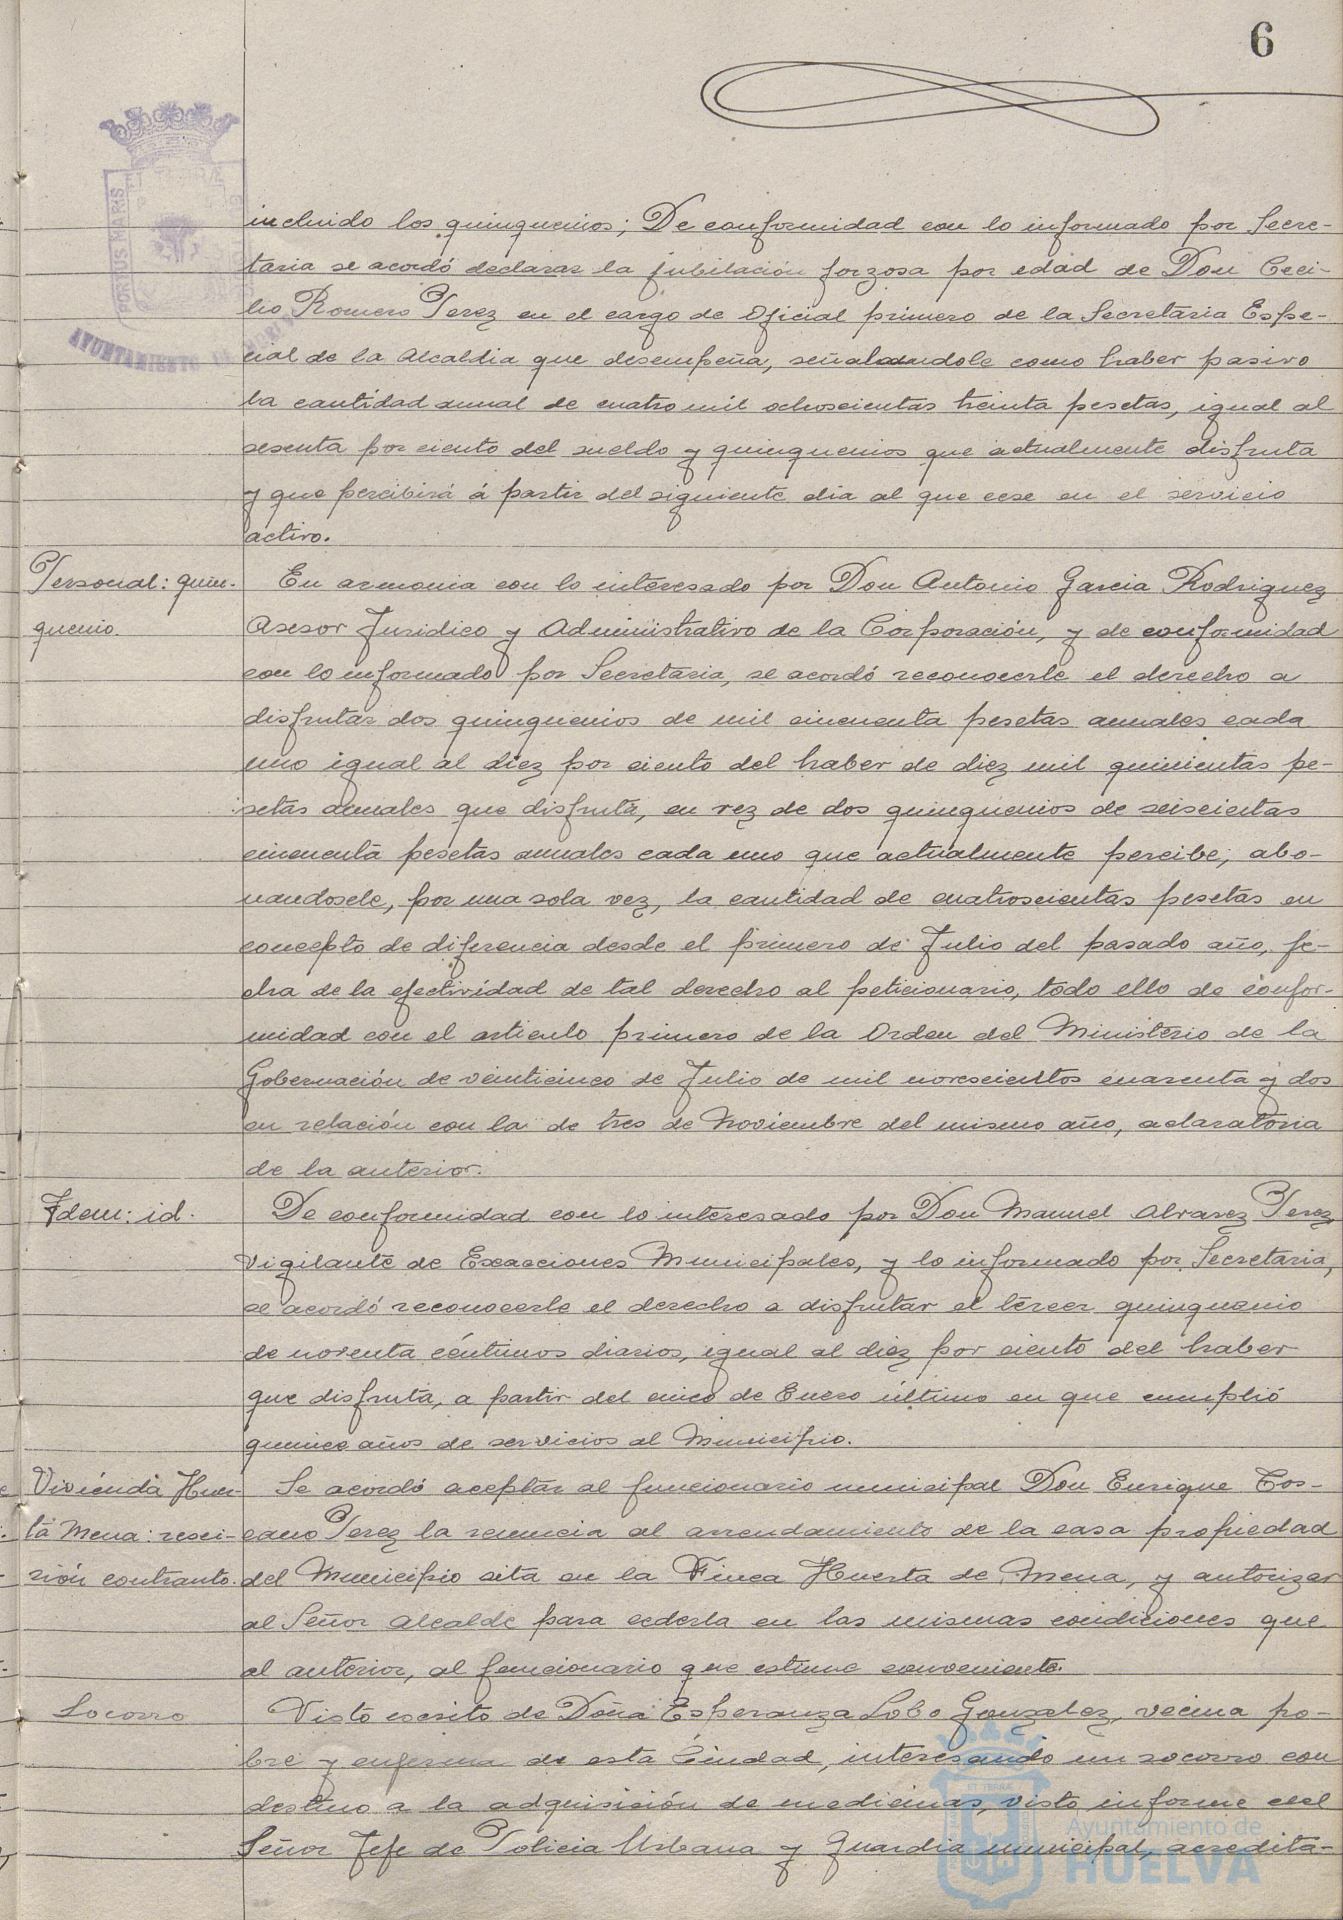 6
PORTUS MARIS
ET TERRÆ
AYUNTAMIENTO DE
incluido los quinquenios; De conformidad con lo informado por Secre-
taria se acordó declarar la jubilación forzosa por edad de Don Ceci-
lio Romero Perez en el cargo de Oficial primero de la Secretaria Espe-
cial de la Alcaldia que desempeña, señalandole como haber pasivo
la cantidad anual de cuatro mil ochocientas treinta pesetas, igual al
sesenta por ciento del sueldo y quinquenios que actualmente disfruta
y que percibirá á partir del siguiente dia al que cese en el servicio
activo.
Personal: quin-
quenio.
En armonia con lo interesado por Don Antonio Garcia Rodriguez
Asesor Juridico y Administrativo de la Corporación, y de conformidad
con lo informado por Secretaria, se acordó reconocerle el derecho a
disfrutar dos quinquenios de mil cincuenta pesetas anuales cada
uno igual al diez por ciento del haber de diez mil quinientas pe-
setas anuales que disfruta, en vez de dos quinquenios de seiscientas
cincuenta pesetas anuales cada uno que actualmente percibe; abo-
nandosele, por una sola vez, la cantidad de cuatroscientas pesetas en
concepto de diferencia desde el primero de Julio del pasado año, fe-
cha de la efectividad de tal derecho al peticionario, todo ello de confor-
midad con el articulo primero de la Orden del Ministerio de la
Gobernación de veinticinco de Julio de mil novescientos cuarenta y dos
en relación con la de tres de Noviembre del mismo año, aclaratoria
de la anterior.
Idem: id.
De conformidad con lo interesado por Don Manuel Alvarez Perez
Vigilante de Exacciones Municipales, y lo informado por Secretaria,
se acordó reconocerle el derecho a disfrutar el tercer quinquenio
de noventa céntimos diarios, igual al diez por ciento del haber
que disfruta, a partir del cinco de Enero último en que cumplió
quince años de servicios al Municipio.
Vivienda Huer-
ta Mena: resci-
sión contranto.
Se acordó aceptar al funcionario municipal Don Enrique Tos-
cano Perez la renuncia al arrendamiento de la casa propiedad
del Municipio sita en la Finca Huerta de Mena, y autorizar
al Señor Alcalde para cederla en las mismas condiciones que
al anterior, al funcionario que estime conveniente.
Socorro
Visto escrito de Doña Esperanza Lobo Gonzalez, vecina po-
bre y enferma de esta Ciudad, interesando un socorro con
destino a la adquisición de medicinas, visto informe del
Señor Jefe de Policia Urbana y Guardia municipal, acredita-
Ayuntamiento de
HUELVA